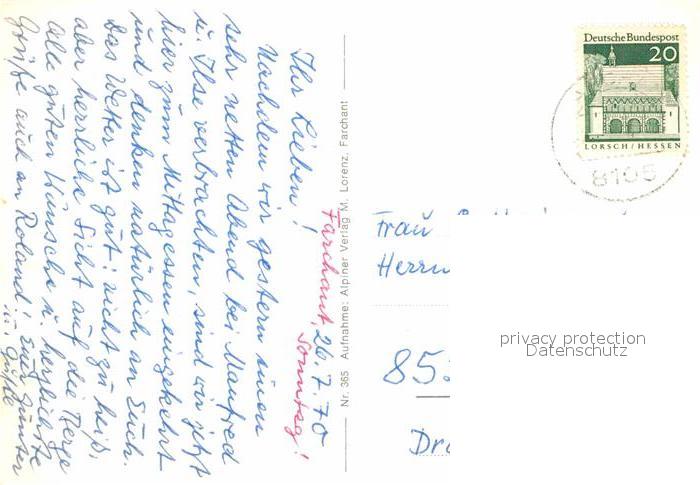 Farchant, 26.7.70
Sonntag!
Ihr Lieben!
Nachdem wir gestern einen
sehr netten Abend bei Manfred
u. Ilse verbrachten, sind wir jetzt
hier zum Mittagessen eingekehrt
und denken natürlich an Euch.
Das Wetter ist gut: nicht zu heiß,
aber herrliche Sicht auf die Berge
Alle guten Wünsche u. herzliche
Grüße auch an Roland! Euch Günter
u.
Nr. 365 Aufnahme: Alpiner Verlag M. Lorenz, Farchant
Deutsche Bundespost
20
LORSCH/HESSEN
8105
Frau
Herrn
85
Dr
privacy protection
Datenschutz